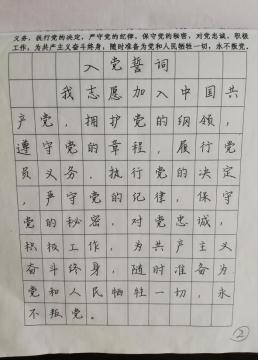 义务,执行党的决定,严守党的纪律,保守党的秘密,对党忠诚,积极
工作,为共产主义奋斗终身,随时准备为党和人民牺牲一切,永不叛党。
入党誓词
我志愿加入中国共
产党,拥护党的纲领,
遵守党的章程,履行党
员义务,执行党的决定
,严守党的纪律,保守
党的秘密,对党忠诚,
积极工作,为共产主义
奋斗终身,随时准备为
党和人民牺牲一切,永
不叛党。
2